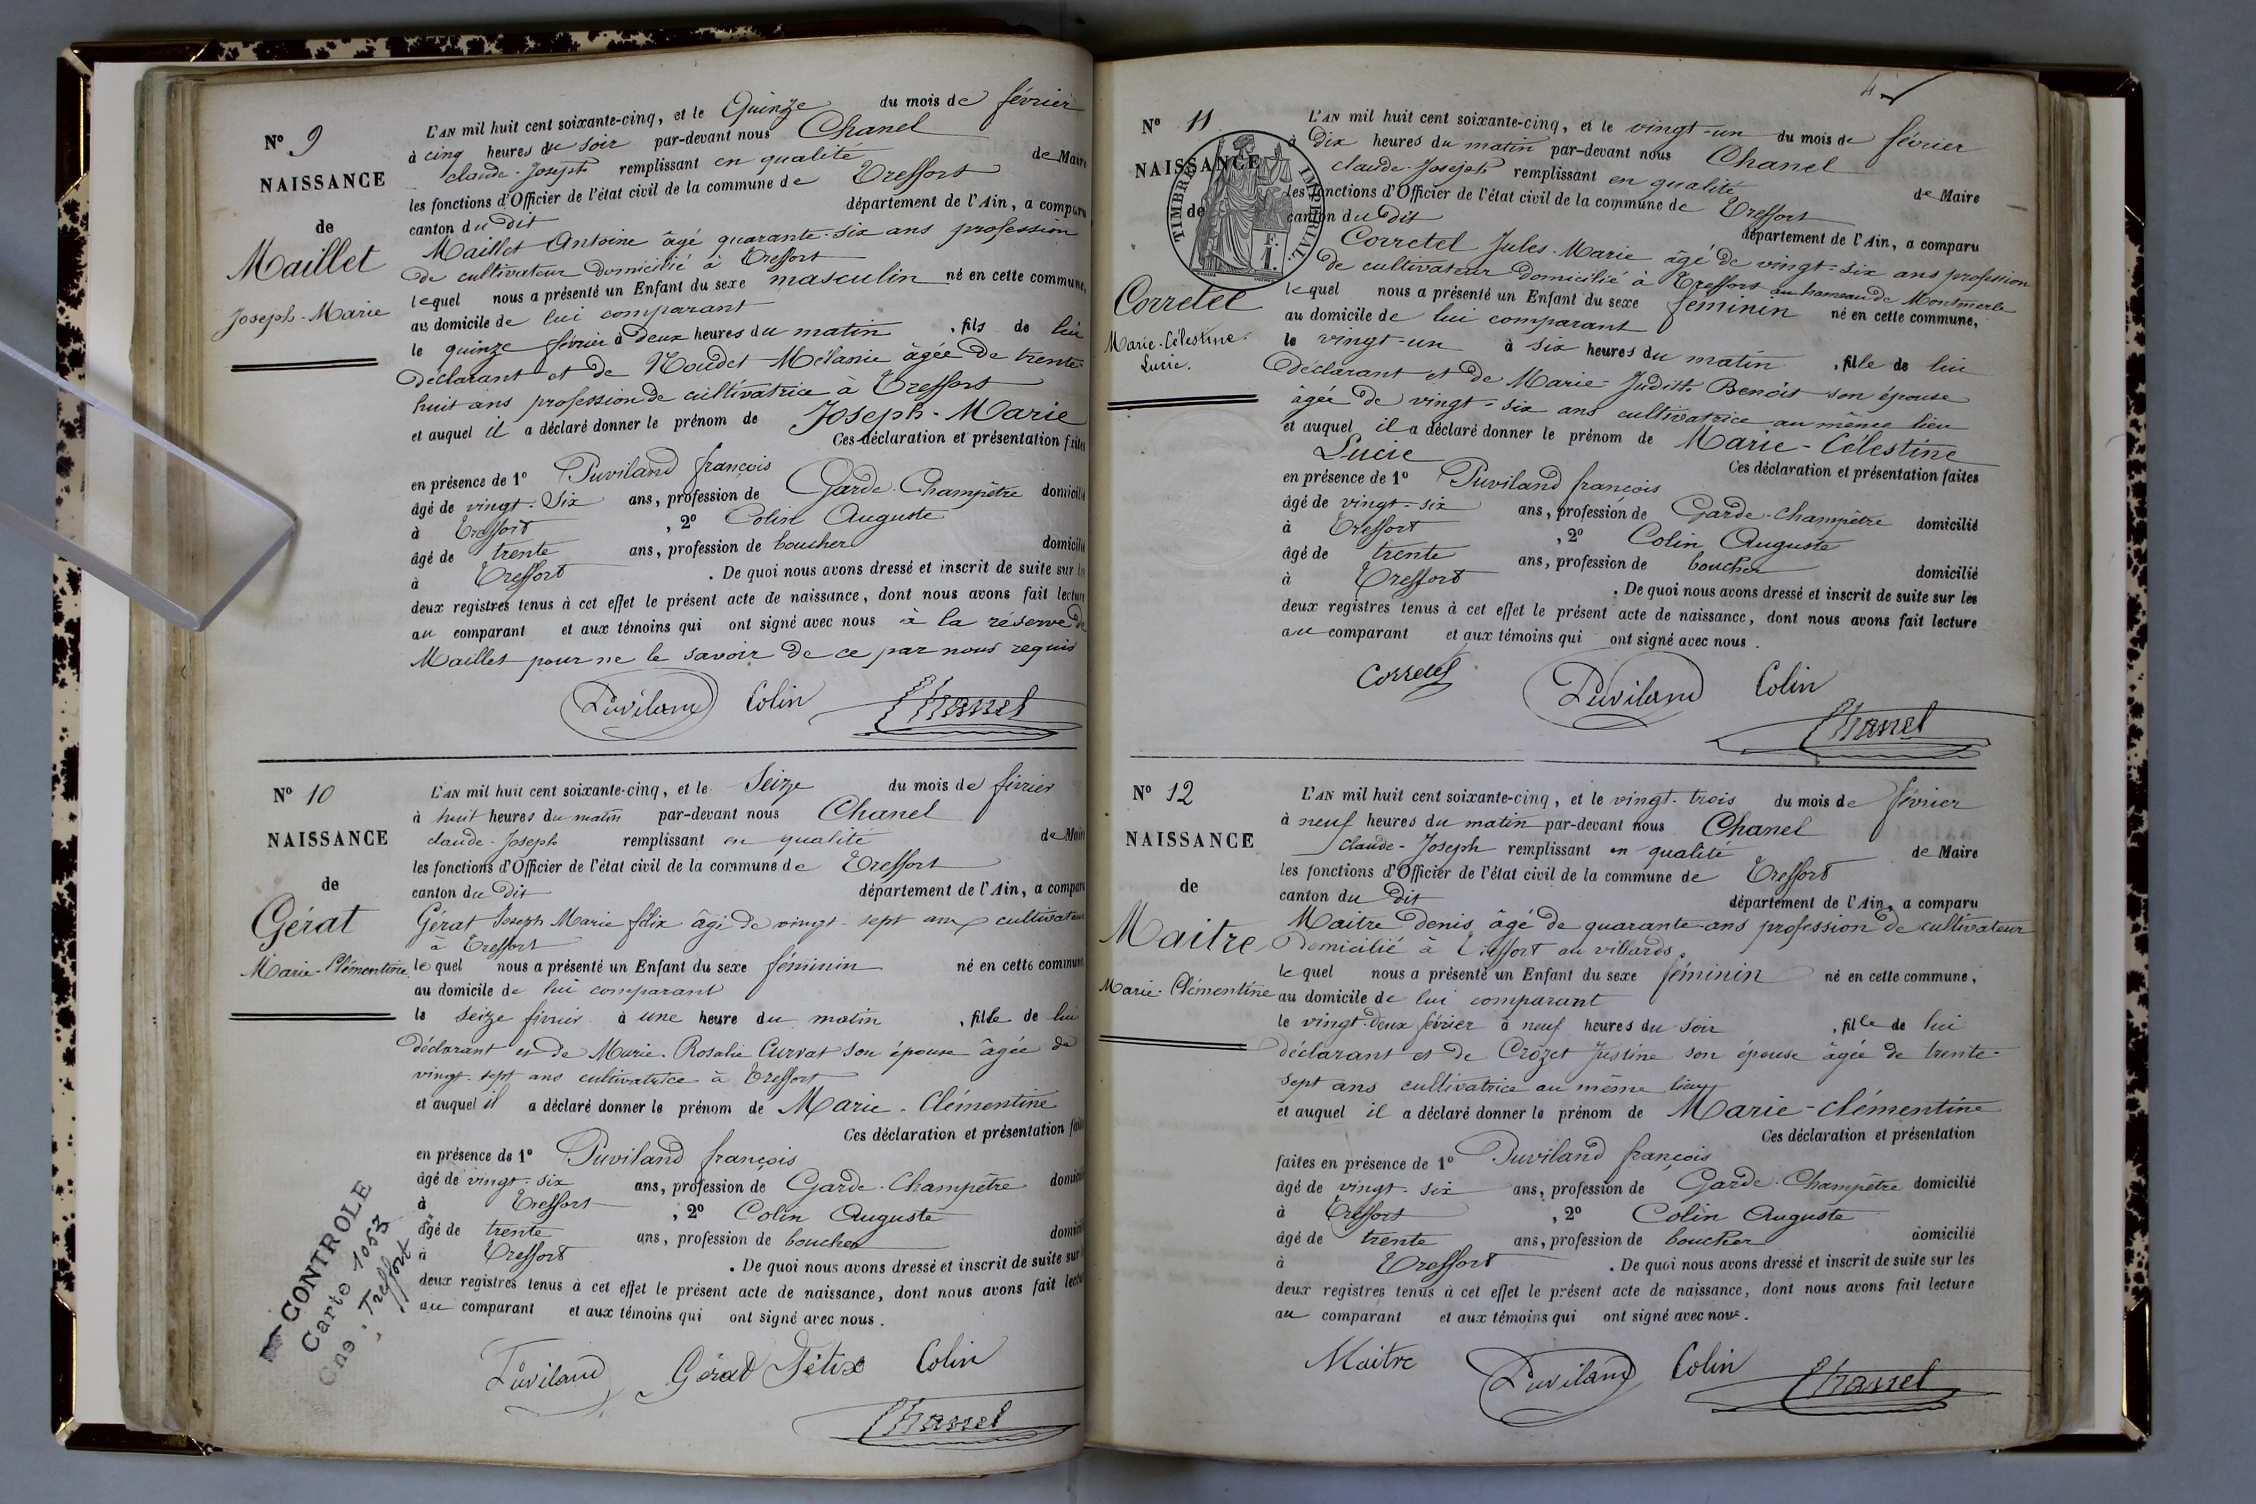 Nº 9
NAISSANCE
de
Maillet
Joseph-Marie
L'AN mil huit cent soixante-cinq, et le Quinze du mois de février
à cinq heures du soir par-devant nous Chanel
claude-Joseph remplissant en qualité de Maire
les fonctions d'Officier de l'état civil de la commune de Treffort
canton du dit département de l'Ain, a comparu
Maillet Antoine âgé quarante-six ans profession
de cultivateur domicilié à Treffort
lequel nous a présenté un Enfant du sexe masculin né en cette commune,
au domicile de lui comparant
le quinze février à deux heures du matin, fils de lui
déclarant et de Moudet Mélanie âgée de trente-
huit ans profession de cultivatrice à Treffort
et auquel il a déclaré donner le prénom de Joseph-Marie
Ces déclaration et présentation faites
en présence de 1º Puviland françois
âgé de vingt-Six ans, profession de Garde-Champêtre domicilié
à Treffort, 2º Colin Auguste
âgé de trente ans, profession de boucher domicilié
à Treffort. De quoi nous avons dressé et inscrit de suite sur les
deux registres tenus à cet effet le présent acte de naissance, dont nous avons fait lecture
au comparant et aux témoins qui ont signé avec nous à la réserve de
Maillet pour ne le savoir de ce par nous requis
Puviland Colin Chanel
Nº 10
NAISSANCE
de
Gérat
Marie-Clémentine
L'AN mil huit cent soixante-cinq, et le Seize du mois de février
à huit heures du matin par-devant nous Chanel
claude-Joseph remplissant en qualité de Maire
les fonctions d'Officier de l'état civil de la commune de Treffort
canton du dit département de l'Ain, a comparu
Gérat Joseph Marie félix âgé de vingt-sept ans cultivateur
à Treffort
lequel nous a présenté un Enfant du sexe féminin né en cette commune
au domicile de lui comparant
le Seize février à une heure du matin, fille de lui
déclarant et de Marie-Rosalie Curvat son épouse âgée de
vingt-sept ans cultivatrice à Treffort
et auquel il a déclaré donner le prénom de Marie-Clémentine
Ces déclaration et présentation faites
en présence de 1º Puviland françois
âgé de vingt-six ans, profession de Garde-Champêtre domicilié
à Treffort, 2º Colin Auguste
âgé de trente ans, profession de boucher domicilié
à Treffort. De quoi nous avons dressé et inscrit de suite sur les
deux registres tenus à cet effet le présent acte de naissance, dont nous avons fait lecture
au comparant et aux témoins qui ont signé avec nous.
Puviland Gérat Félix Colin
Chanel
CONTROLE
Carte 1053
Cne. Treffort
4
Nº 11
NAISSANCE
de
TIMBRE IMPÉRIAL
F.
1.
Corretel
Marie-Célestine-
Lucie.
L'AN mil huit cent soixante-cinq, et le vingt-un du mois de février
à Dix heures du matin par-devant nous Chanel
claude-Joseph remplissant en qualité de Maire
les fonctions d'Officier de l'état civil de la commune de Treffort
canton du dit département de l'Ain, a comparu
Corretel Jules-Marie âgé de vingt-six ans profession
de cultivateur domicilié à Treffort au hameau de Montmerle
lequel nous a présenté un Enfant du sexe féminin né en cette commune,
au domicile de lui comparant
le vingt-un à six heures du matin, fille de lui
déclarant et de Marie-Judith Benoit son épouse
âgée de vingt-six ans cultivatrice au même lieu
et auquel il a déclaré donner le prénom de Marie-Célestine
Lucie Ces déclaration et présentation faites
en présence de 1º Puviland françois
âgé de vingt-six ans, profession de Garde-champêtre domicilié
à Treffort, 2º Colin Auguste
âgé de trente ans, profession de boucher domicilié
à Treffort. De quoi nous avons dressé et inscrit de suite sur les
deux registres tenus à cet effet le présent acte de naissance, dont nous avons fait lecture
au comparant et aux témoins qui ont signé avec nous.
Corretel Puviland Colin
Chanel
Nº 12
NAISSANCE
de
Maitre
Marie-Clémentine
L'AN mil huit cent soixante-cinq, et le vingt-trois du mois de février
à neuf heures du matin par-devant nous Chanel
claude-Joseph remplissant en qualité de Maire
les fonctions d'Officier de l'état civil de la commune de Treffort
canton du dit département de l'Ain, a comparu
Maitre denis âgé de quarante-ans profession de cultivateur
Domicilié à Treffort au villards.
lequel nous a présenté un Enfant du sexe féminin né en cette commune,
au domicile de lui comparant
le vingt-deux février à neuf heures du soir, fille de lui
déclarant et de Crozet Justine son épouse âgée de trente-
sept ans cultivatrice au même lieu
et auquel il a déclaré donner le prénom de Marie-clémentine
Ces déclaration et présentation
faites en présence de 1º Puviland françois
âgé de vingt-six ans, profession de Garde-Champêtre domicilié
à Treffort, 2º Colin Auguste
âgé de trente ans, profession de boucher domicilié
à Treffort. De quoi nous avons dressé et inscrit de suite sur les
deux registres tenus à cet effet le présent acte de naissance, dont nous avons fait lecture
au comparant et aux témoins qui ont signé avec nous.
Maitre Puviland Colin Chanel